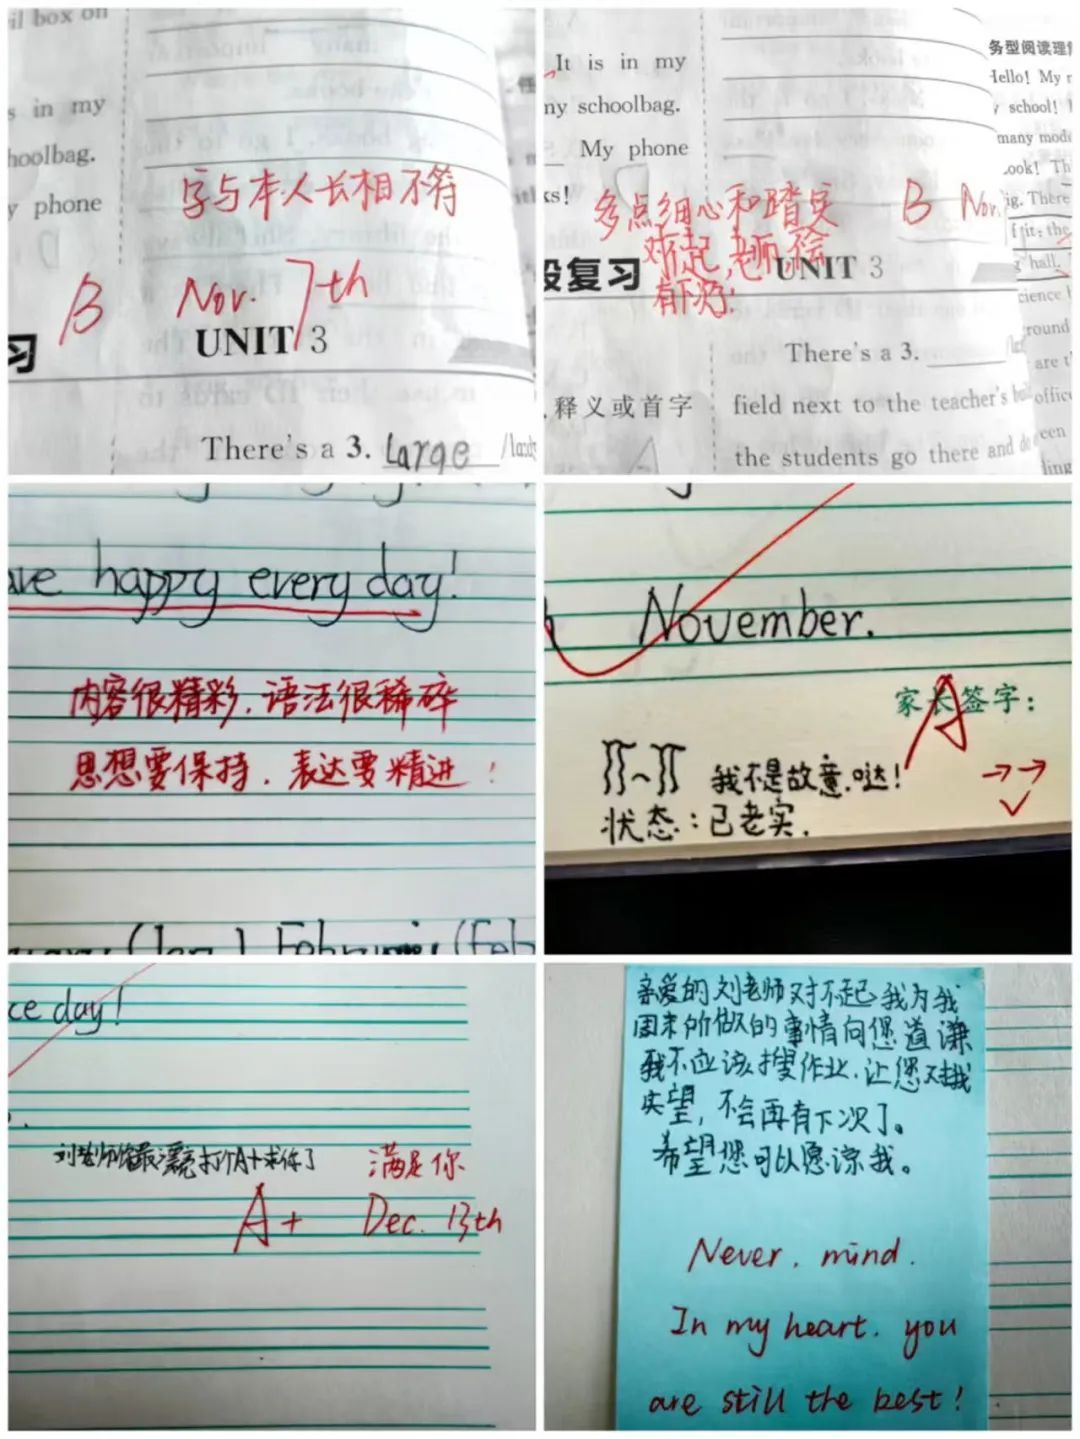 il box on
s in my
hoolbag.
y phone
字与本人长相不符
B Nov. 7th
习
UNIT 3
There's a 3. Large
It is in my
ny schoolbag.
My phone
ks!
多点细心和踏实
对不起,老师,不会
有下次!
B Nov.
段复习
UNIT 3
There's a 3.
释义或首字
field next to the teacher's
the students go there and do
务型阅读理解
Hello! My
school!
many mod
Look! Th
ig. There
f it: the
hall.
cience
round
are t
office
een
ling
ave happy every day!
内容很精彩,语法很稀碎
思想要保持,表达要精进!
(Jan.) February (Feb
November.
家长签字:
A
我不是故意哒!
状态:已老实.
ce day!
刘老师给我打个A+求你了
满足你
A+ Dec. 13th
亲爱的刘老师对不起我为我
周末所做的事情向您道谦
我不应该搜作业,让您对我
失望,不会再有下次了。
希望您可以愿谅我。
Never. mind.
In my heart. you
are still the best!